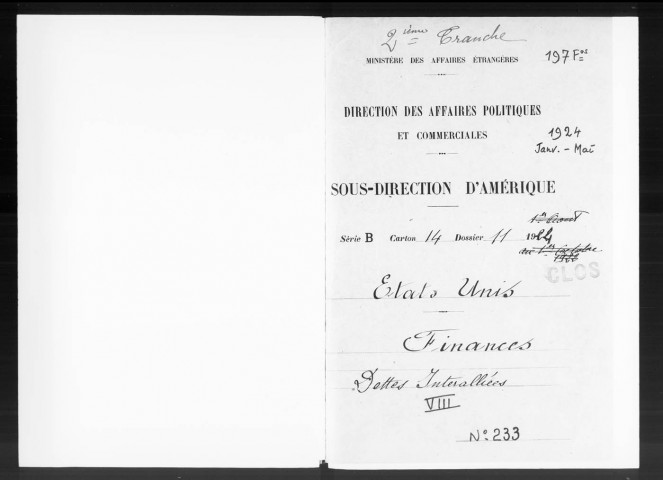 2ième Tranche
MINISTÈRE DES AFFAIRES ÉTRANGÈRES
197 Fos
DIRECTION DES AFFAIRES POLITIQUES
ET COMMERCIALES
1924
Janv. - Mai
SOUS-DIRECTION D'AMÉRIQUE
Série B Carton 14 Dossier 11 1924
CLOS
Etats Unis
Finances
Dettes Interalliées
VIII
No 233